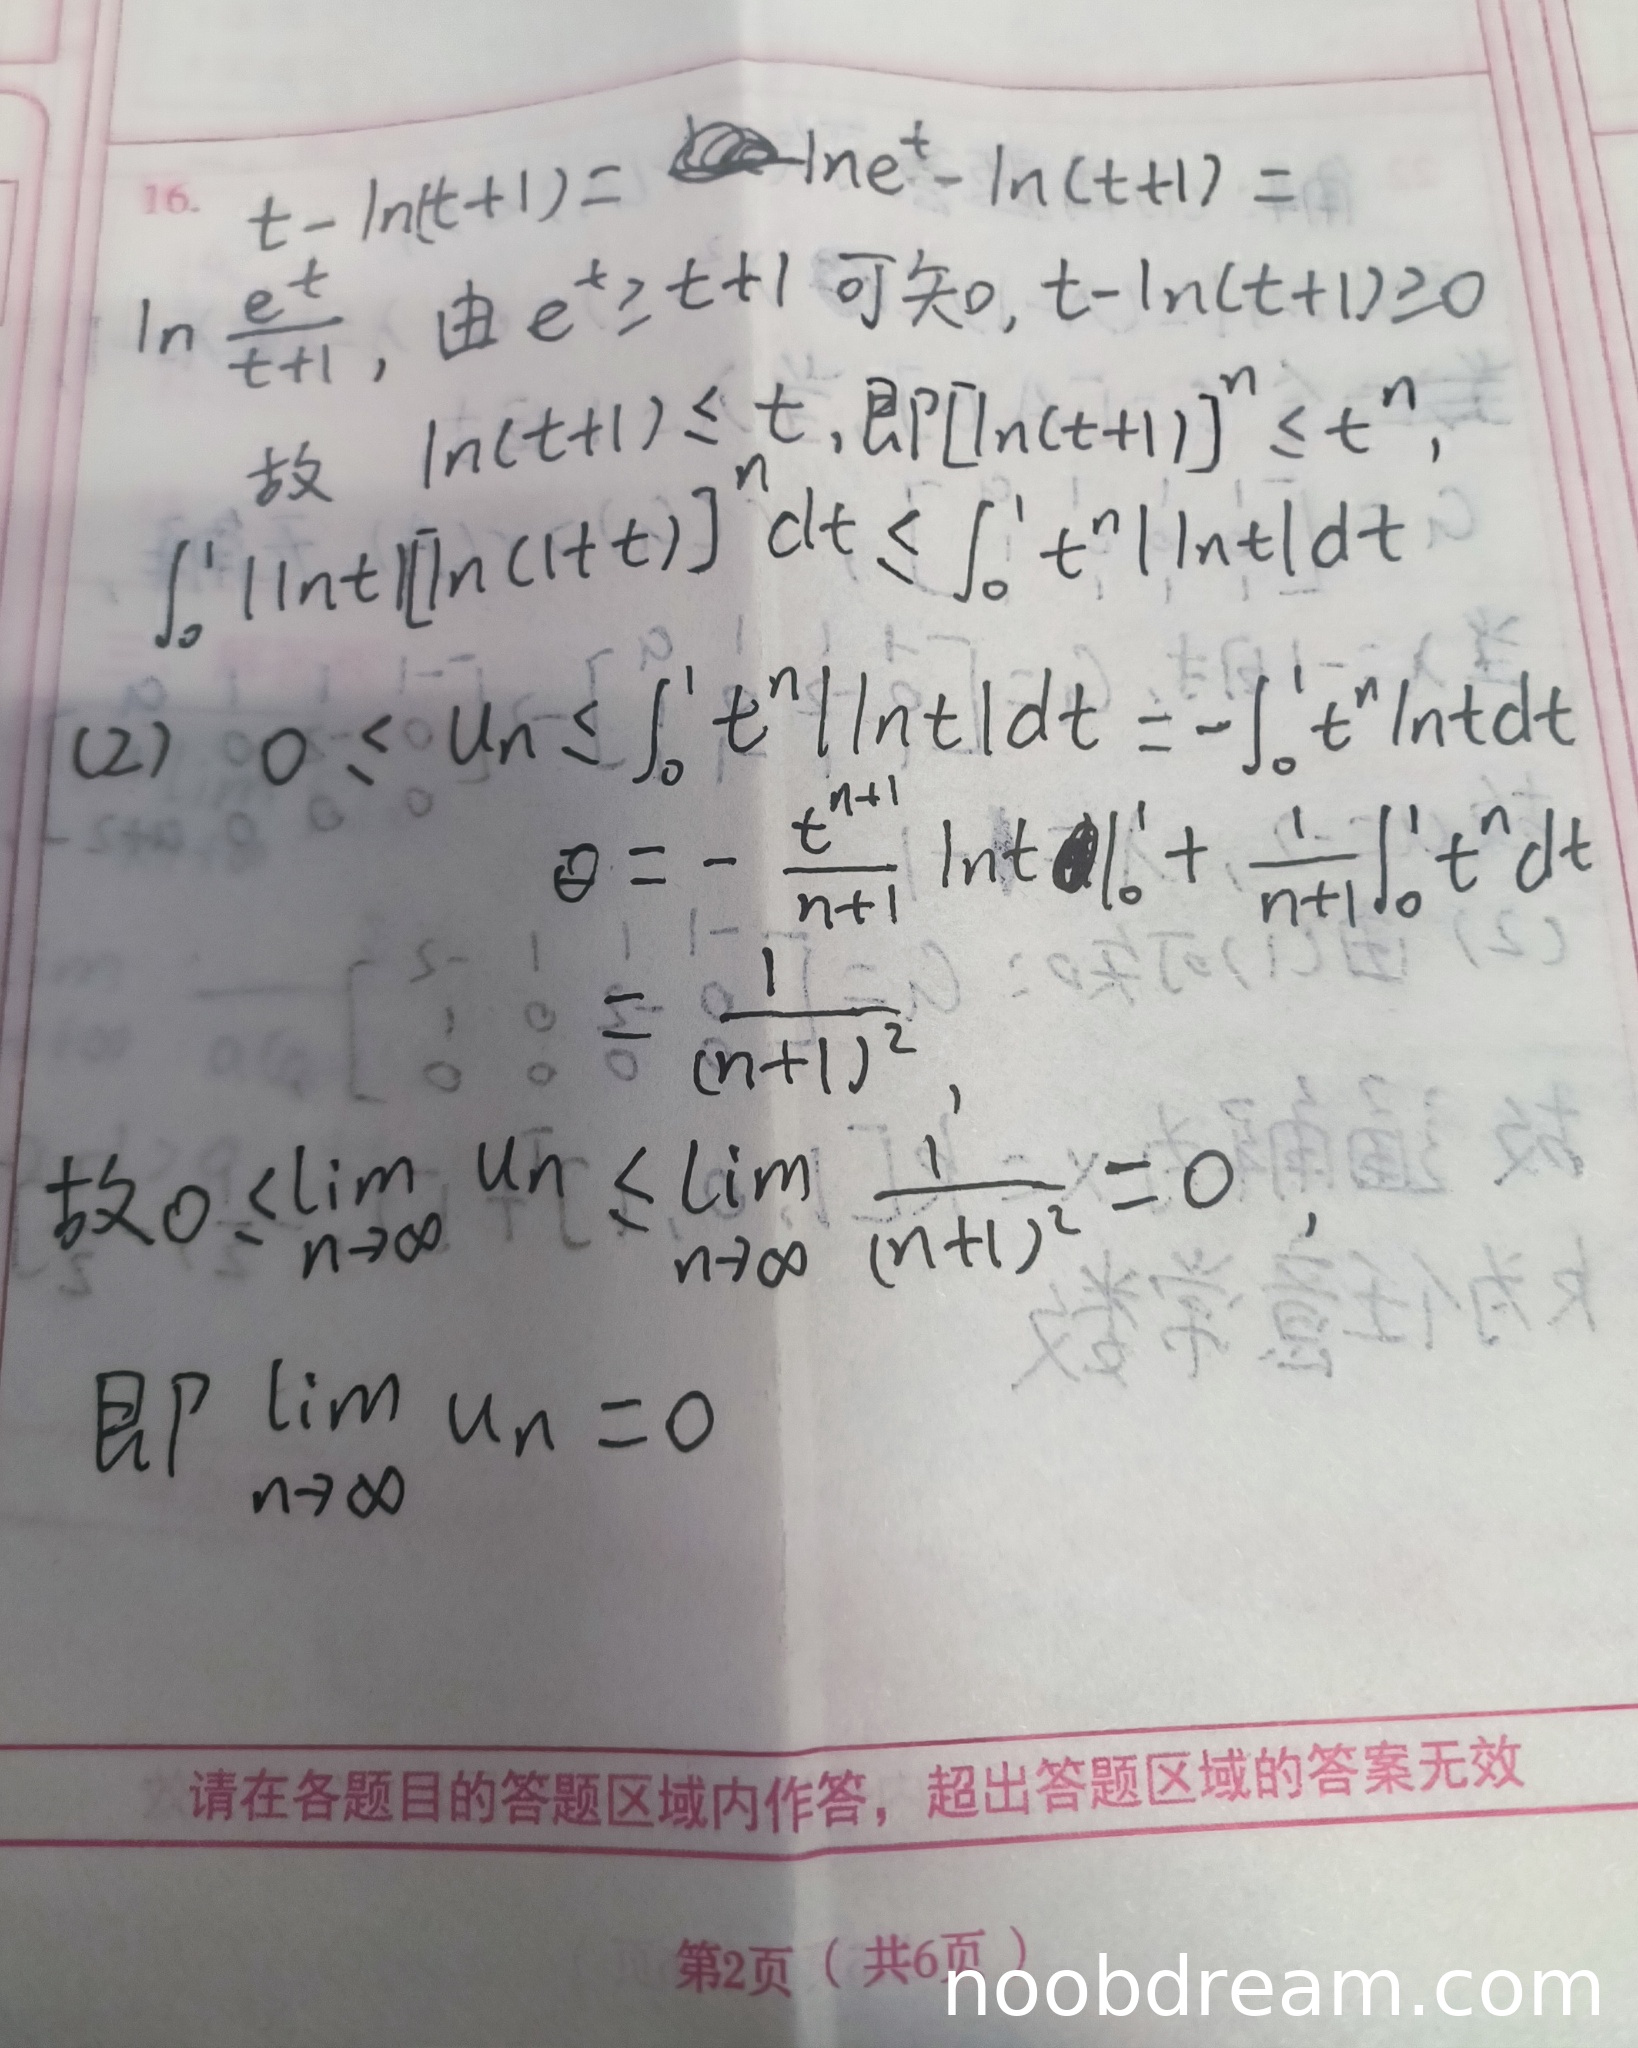 16. t-ln(t+1)= lne^t-ln(t+1)=
ln e^t/(t+1), 由e^t≥t+1可知, t-ln(t+1)≥0
故 ln(t+1)≤t,即[ln(t+1)]^n≤t^n,
∫_0^1|lnt|[ln(1+t)]^n dt≤∫_0^1 t^n|lnt|dt
(2) 0≤u_n≤∫_0^1 t^n|lnt|dt=-∫_0^1 t^n lntdt
=-t^(n+1)/(n+1) lnt|_0^1+1/(n+1)∫_0^1 t^n dt
=1/(n+1)^2,
故0≤lim_{n→∞} u_n≤lim_{n→∞} 1/(n+1)^2=0,
即 lim_{n→∞} u_n=0
请在各题目的答题区域内作答，超出答题区域的答案无效
第2页（共6页）
noobdream.com